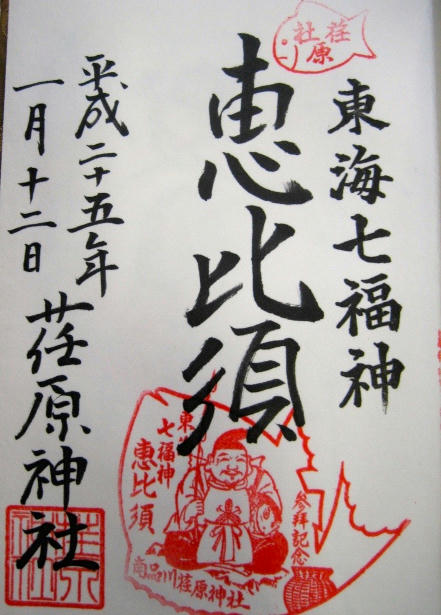 東海七福神
恵比須
平成二十五年
一月十二日
荏原神社
荏原
社
東海
七福神
恵比須
参拝記念
南品川荏原神社